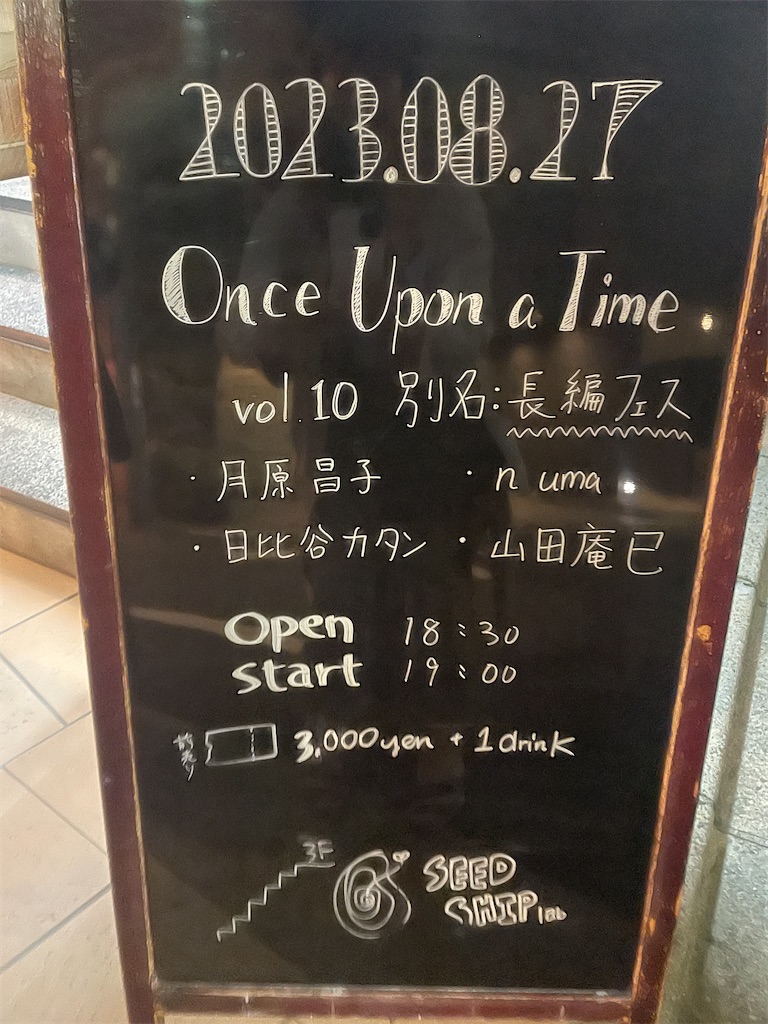 2023.08.27
Once Upon a Time
vol.10 別名:長編フェス
・月原昌子 ・n uma
・日比谷カタン ・山田庵巳
Open 18:30
start 19:00
前売り 3,000yen + 1drink
3F
SEED
SHIP lab